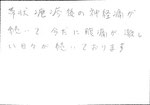 帯状疱疹後の神経痛が
続いて今だに眼痛が激し
い日々が続いております